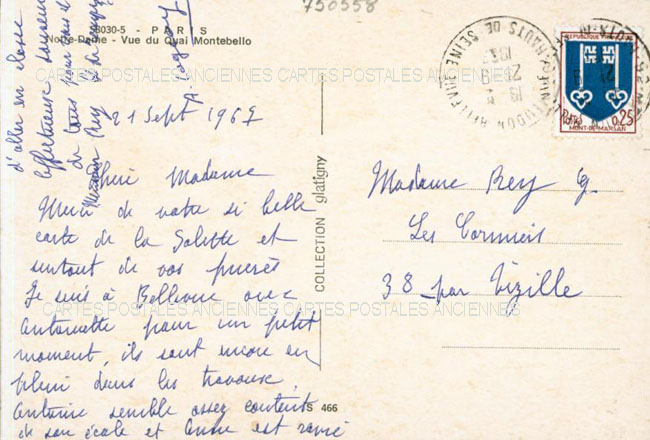 750558
58030-5 - PARIS
Notre-Dame - Vue du Quai Montebello
CARTES POSTALES ANCIENNES CARTES POSTALES ANCIENNES
21 Sept 1967
Chère Madame
Merci de votre si belle
carte de la Salette et
surtout de vos prières
Je suis à Bellevue avec
Antoinette pour un petit
moment, ils sont encore en
plein dans les travaux,
Antoine semble assez content
de son école et Anne est ravie
d'aller en classe
affectueux
de tous pour
COLLECTION glatigny
S 466
HAUTS DE SEINE
21 9
REPUBLIQUE FRANCAISE
POSTES
0,25
MONT-DE-MARSAN
Madame Rey G.
Les Cormiers
38 par Vizille
CARTES POSTALES ANCIENNES CARTES POSTALES ANCIENNES